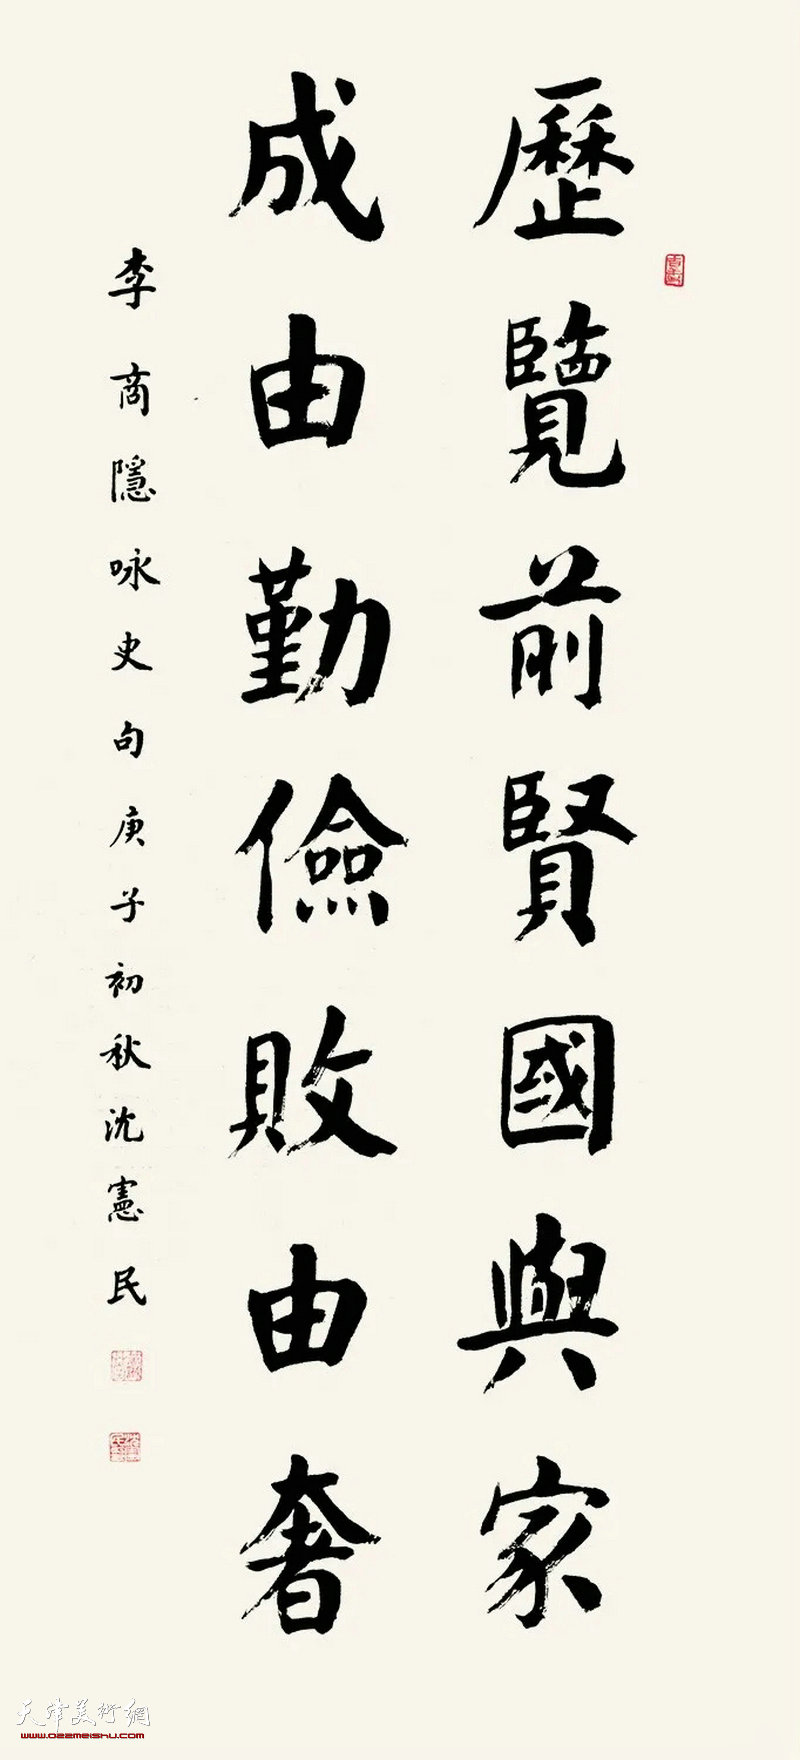 歷覽前賢國與家
成由勤儉敗由奢
李商隱咏史句庚子初秋沈憲民
天津美术網
www.022meishu.com